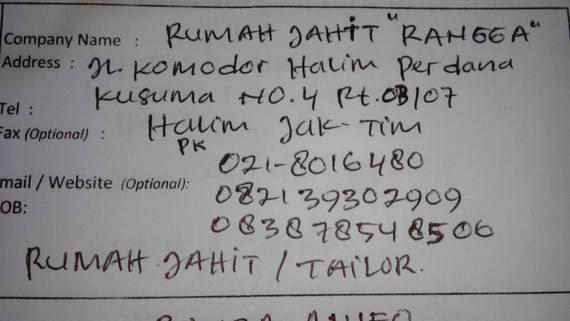 Company Name : RUMAH JAHIT "RANGGA"
Address : Jl. Komodor Halim Perdana
Kusuma NO.4 Rt.03/07
Tel :
Fax (Optional) : Halim Jak-Tim
PK
021-8016480
mail / Website (Optional):
082139302909
OB:
083878548506
RUMAH JAHIT / TAILOR.